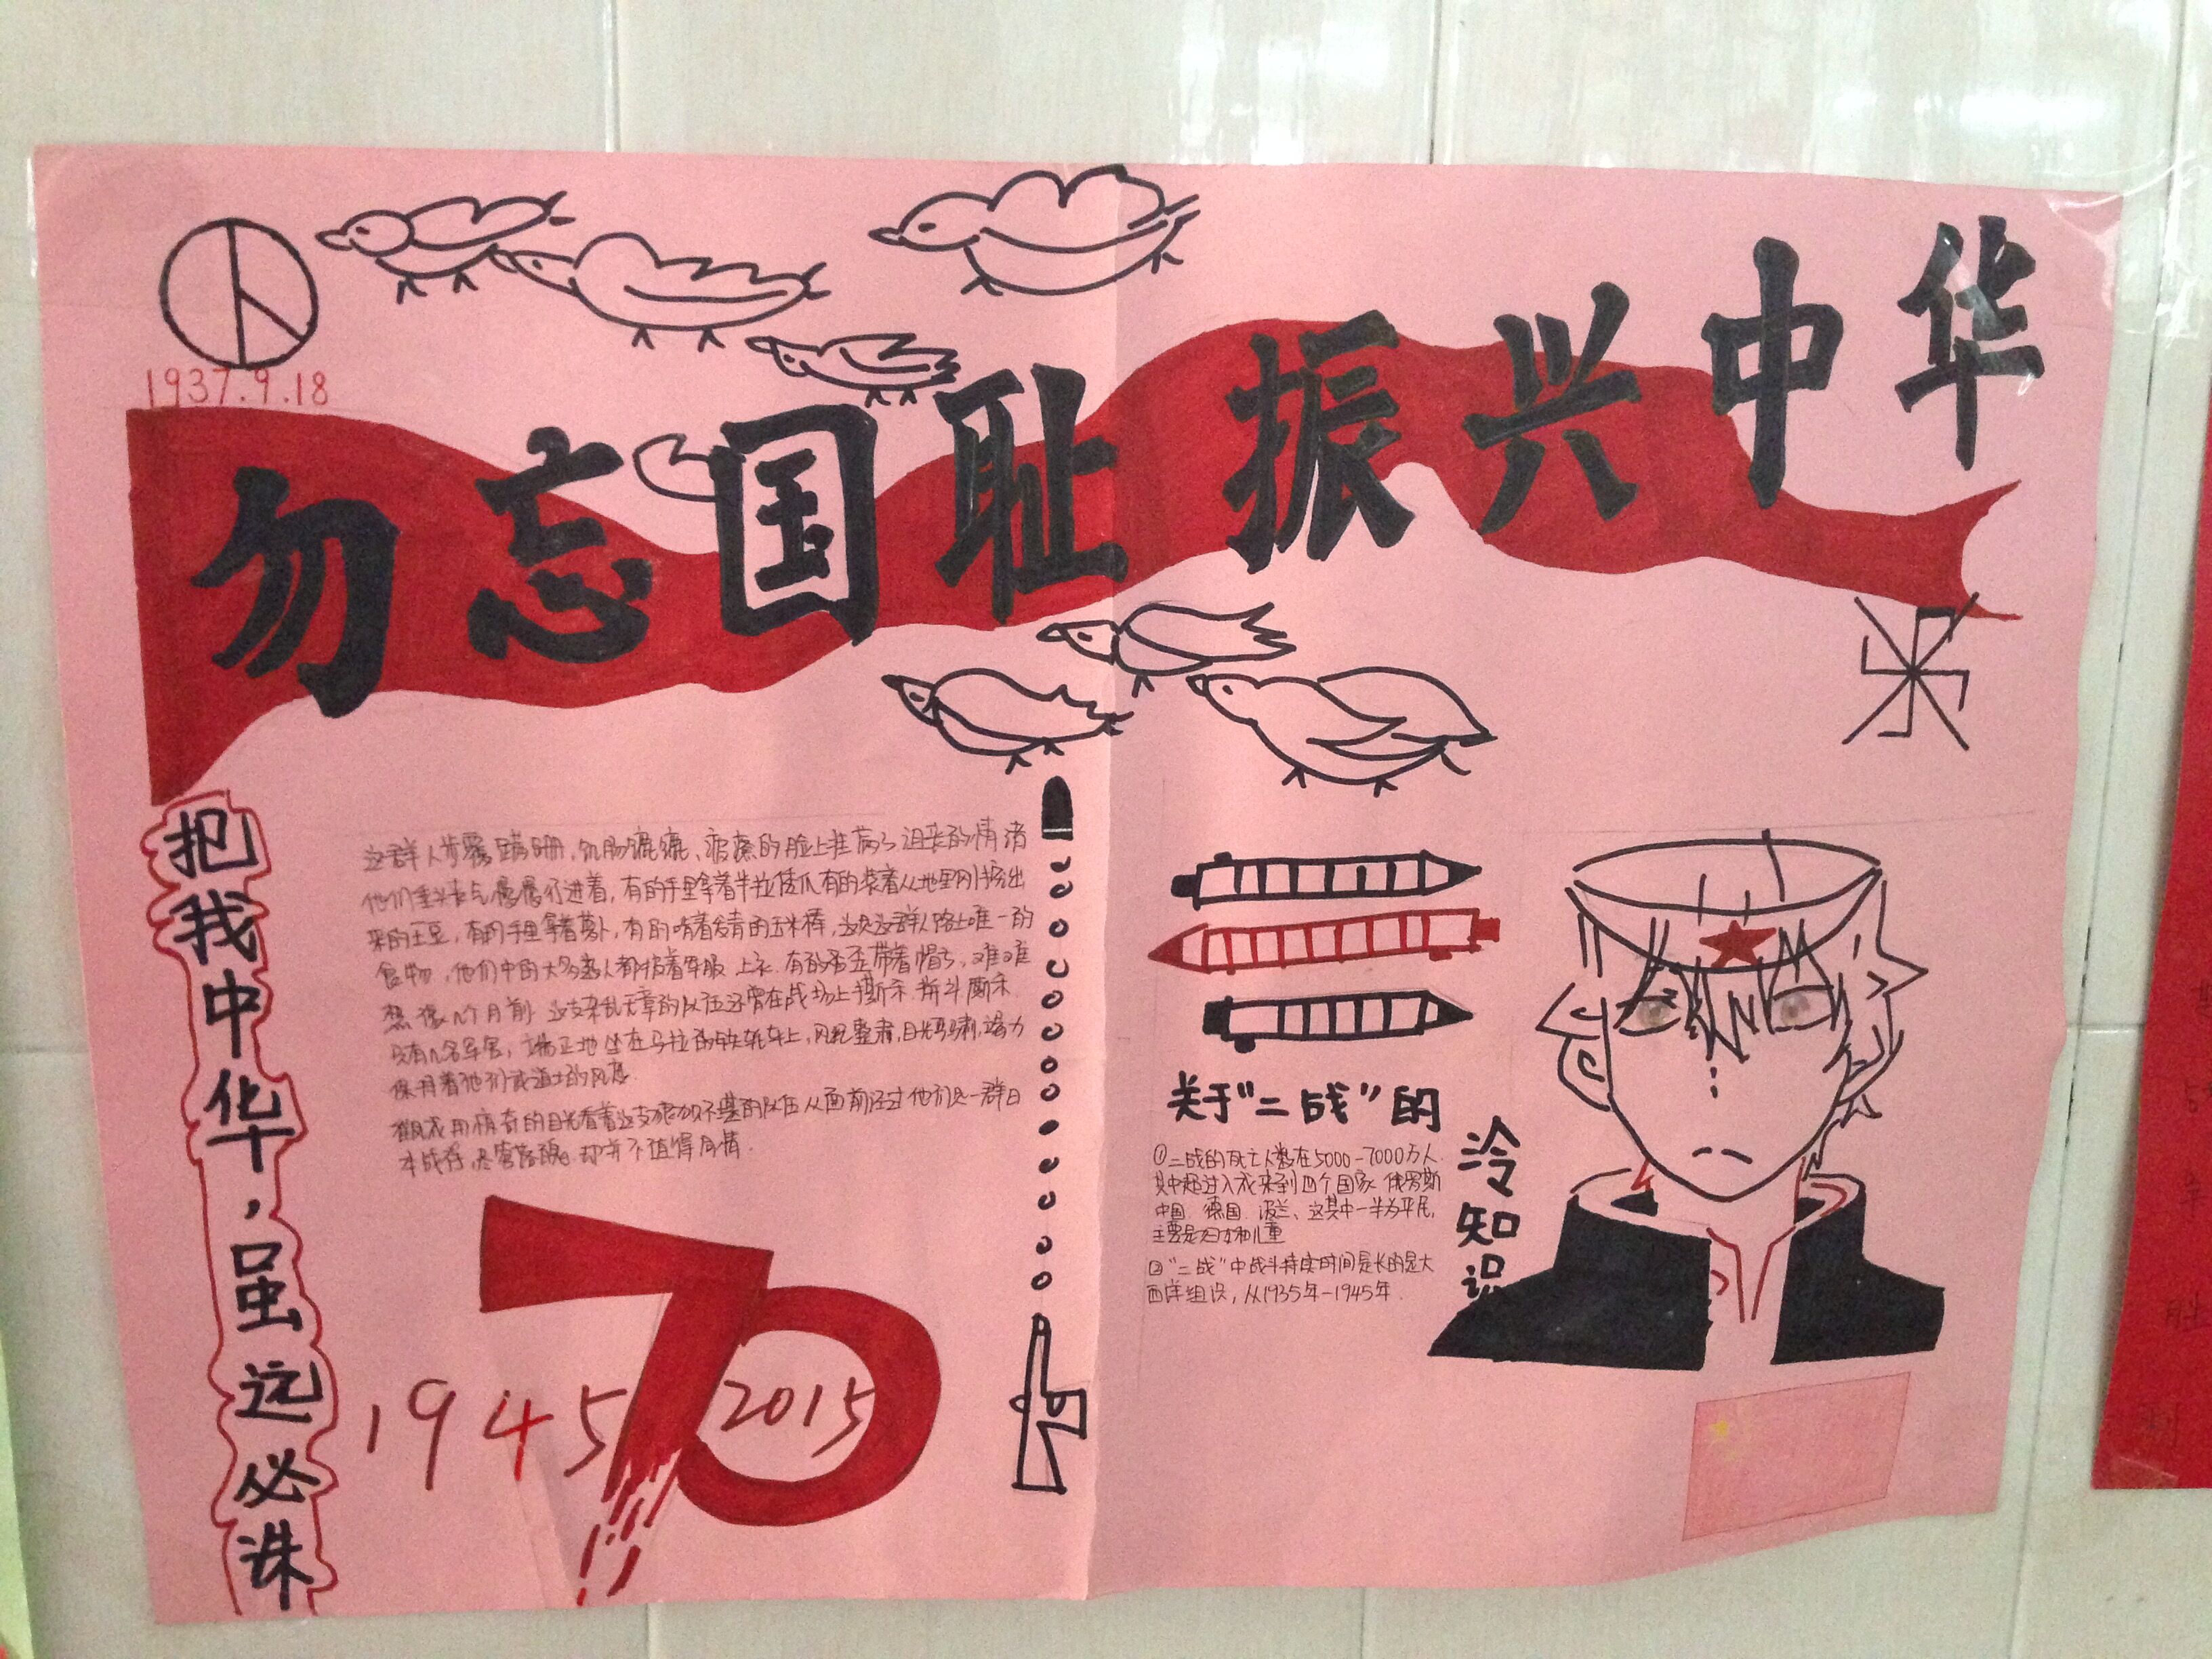 1937.9.18
勿忘国耻 振兴中华
把我中华，虽远必诛
这群人步履蹒跚，饥肠辘辘、疲惫的脸上挂满了沮丧的情绪
他们垂头丧气慢慢行进着，有的手里拿着 有的装着从地里刚挖出
来的土豆，有的手里拿着萝卜，有的啃着发青的玉米棒，这是这群人路上唯一的
食物，他们中的大多数人都披着军服上衣 有的歪歪带着帽子，难
想像几个月前 这支杂乱无章的队伍还曾在战场上
只有几名军官，端正地坐在马拉的铁轮车上，风纪整肃，目光 ，竭力
保持着他们武道士的风度
用惊奇的目光看着这支 不堪的队伍从面前经过 他们是一群日
本战俘，尽管落魄 却并不值得同情．
1945 70 2015
关于“二战”的
冷知识
①二战的死亡人数在5000-7000万人
其中超过 来到四个国家 俄罗斯
中国 德国 波兰、这其中一半为平民，
主要是妇女和儿童
②“二战”中战斗持续时间最长的是大
西洋 ，从1935年-1945年．
胜
利